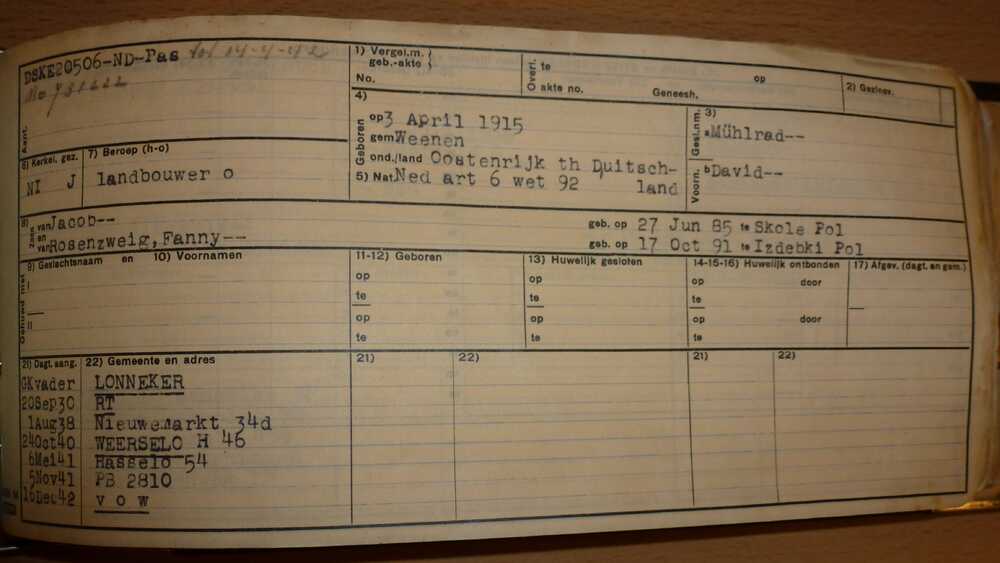 DSKE20506-ND-Pas tot 14-4-42
Aant.
1) Vergel.m. geb.-akte
No.
Overl. te op
akte no. Geneesh.
2) Gezinsv.
4)
Geboren
op 3 April 1915
gem Weenen
ond./land Oostenrijk th Duitsch-
5) Nat. Ned art 6 wet 92 land
3)
Gesl.nm.
a Mühlrad--
Voorn.
b David--
6) Kerkel. gez. 7) Beroep (h-o)
NI J landbouwer o
8)
Zoon van Jacob-- geb. op 27 Jun 85 te Skole Pol
en
van Rosenzweig, Fanny-- geb. op 17 Oct 91 te Izdebki Pol
Gehuwd met
9) Geslachtsnaam en 10) Voornamen 11-12) Geboren 13) Huwelijk gesloten 14-15-16) Huwelijk ontbonden 17) Afgev. (dagt. en gem.)
I op op op door
te te te
II op op op door
te te te
21) Dagt. aang. 22) Gemeente en adres 21) 22) 21) 22)
GKvader LONNEKER
20Sep30 RT
1Aug38 Nieuwemarkt 34d
24Oct40 WEERSELO H 46
6Mei41 Hasselo 54
5Nov41 PB 2810
16Dec42 v o w